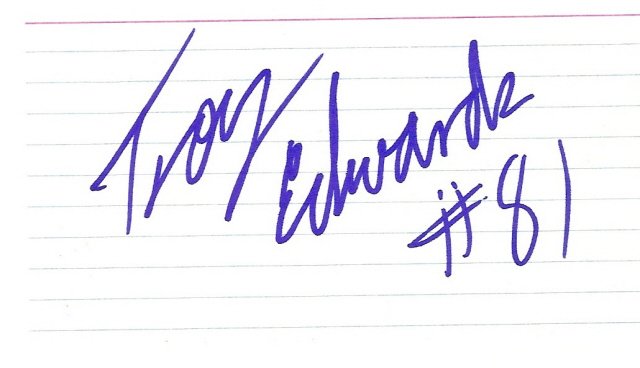 Troy Edwards
#81